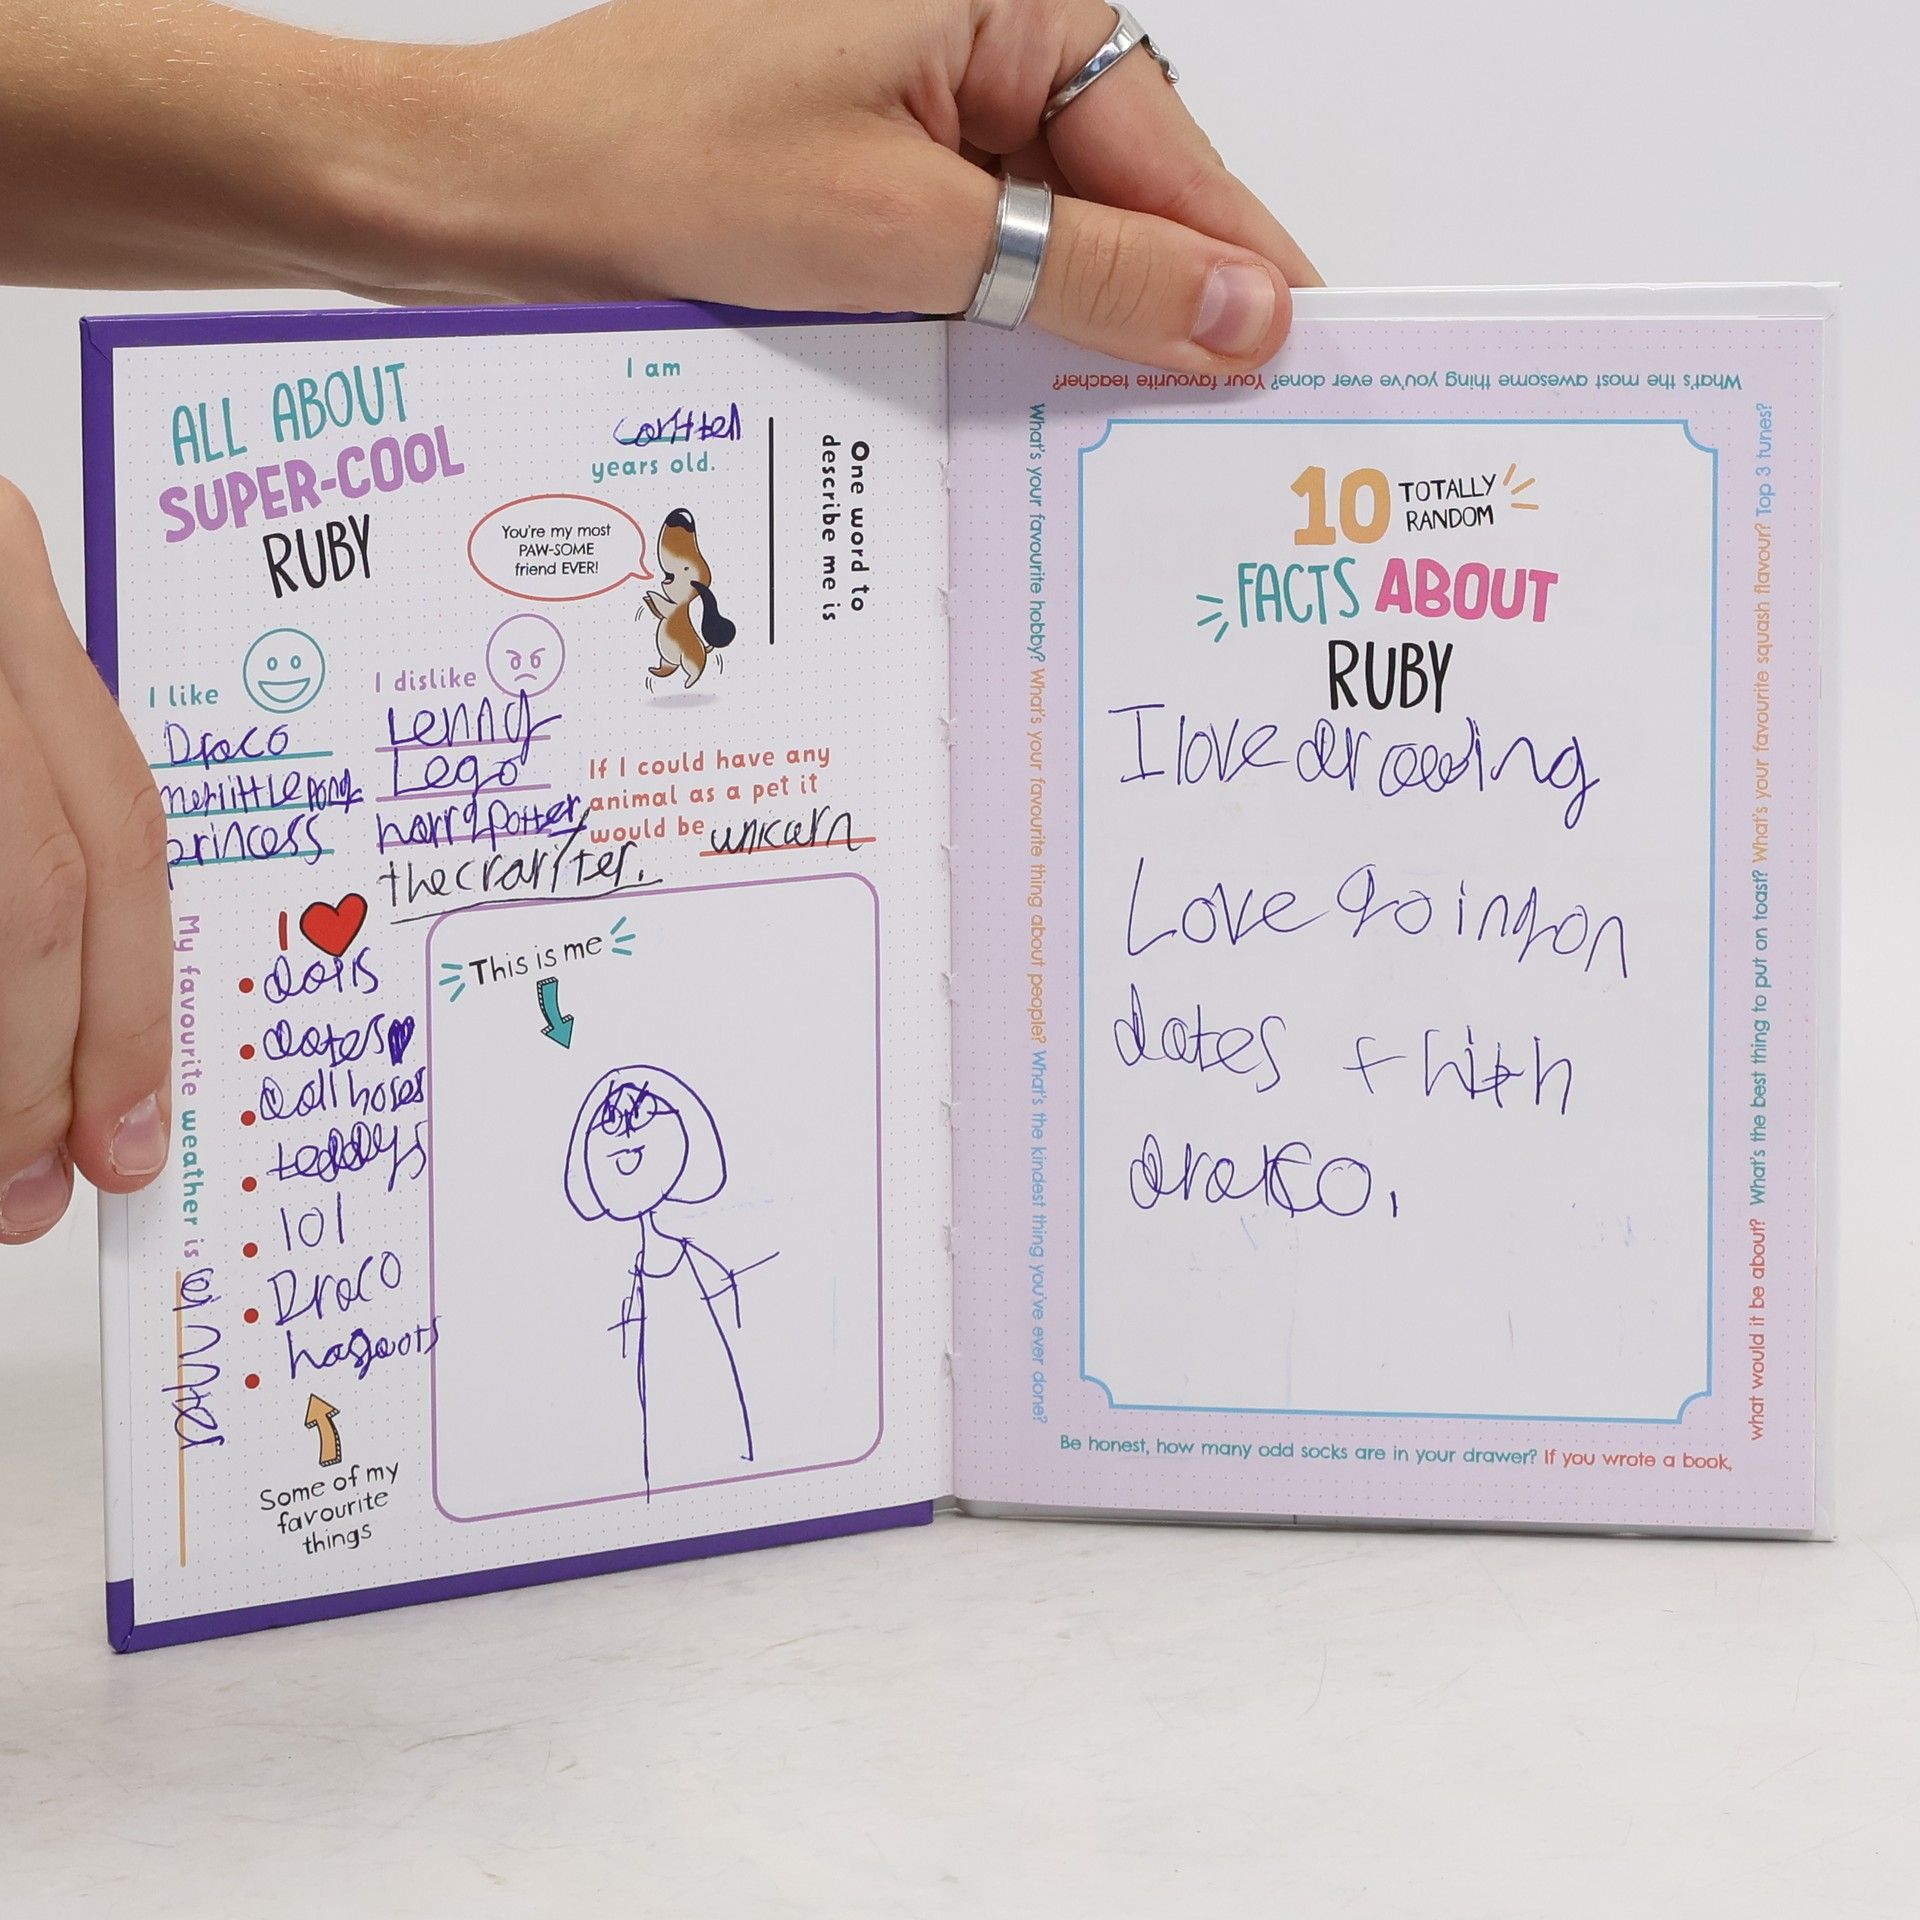 ALL ABOUT
SUPER-COOL
RUBY
I am
years old.
One word to
describe me is
You're my most
PAW-SOME
friend EVER!
I like
Draco
princess
I dislike
Lego
harrypotter
If I could have any
animal as a pet it
would be unicarn
I
dolls
dates
doll hoses
teddys
101
Draco
Some of my
favourite
things
My favourite weather is
This is me
10 TOTALLY
RANDOM
FACTS ABOUT
RUBY
I love drawing
Love going on
dates
What's the most awesome thing you've ever done? Your favourite teacher?
What's your favourite hobby? What's your favourite thing about people? What's the kindest thing you've ever done?
Be honest, how many odd socks are in your drawer? If you wrote a book,
what would it be about? What's the best thing to put on toast? What's your favourite squash flavour? Top 3 tunes?